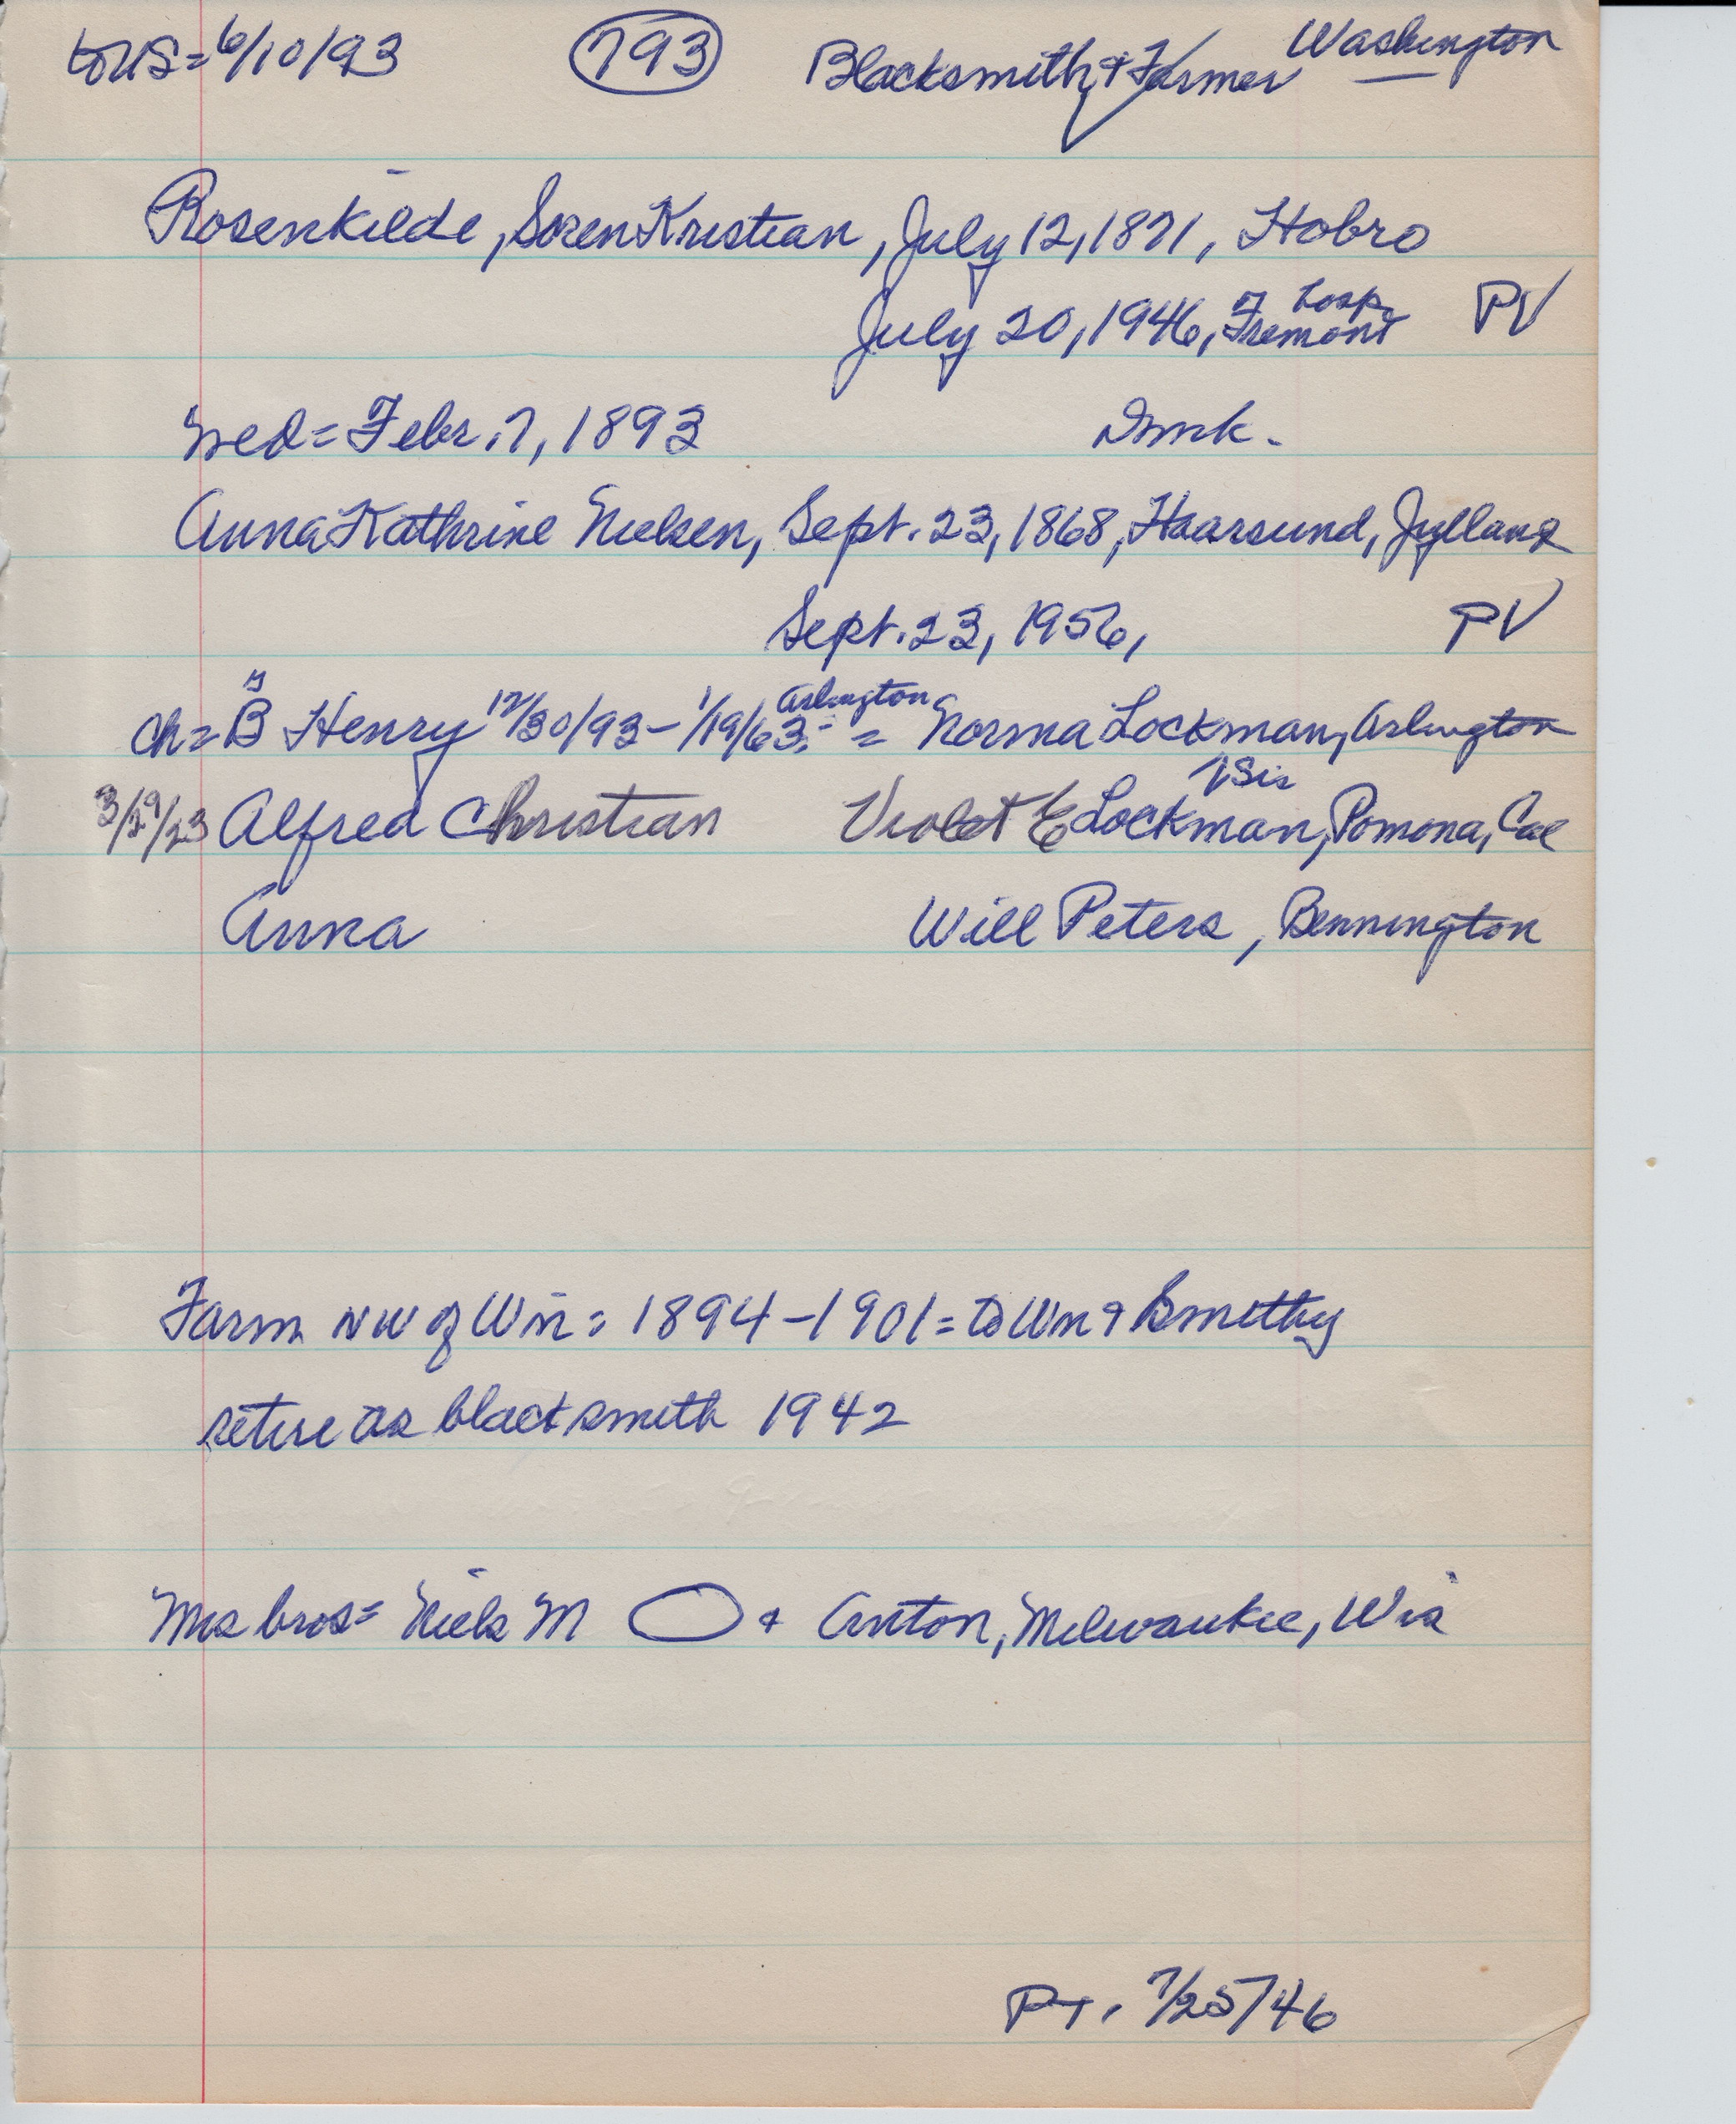 to US = 6/10/93 (793) Blacksmith & Farmer Washington
Rosenkilde, Soren Kristian, July 12, 1871, Hobro
July 20, 1946, Fremont Hosp. PV
wed = Febr. 7, 1893 Dmk.
Anna Kathrine Nielsen, Sept. 23, 1868, Haarsund, Jylland
Sept. 23, 1956, PV
ch = B Henry 12/30/93 – 1/19/63 Arlington = Norma Lockman, Arlington
sis
3/29/23 Alfred Christian Violet E Lockman, Pomona, Cal
Anna Will Peters, Bennington
Farm NW of Wn: 1894 – 1901 = to Wn & Bsmithy
retire as blacksmith 1942
Mrs bros = Niels M & Anton, Milwaukee, Wis
PT. 7/25/46